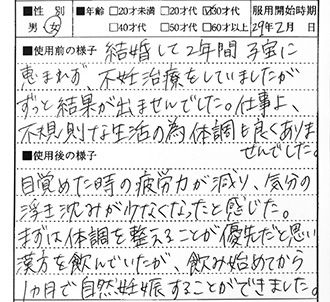 ■性別 ■年齢 □20才未満 □20才代 ☑30才代 服用開始時期
男・女 □40才代 □50才代 □60才以上 29年2月 日
■使用前の様子 結婚して2年間子宝に
恵まれず、不妊治療をしていましたが
ずっと結果が出ませんでした。仕事上、
不規則な生活の為体調も良くありま
せんでした。
■使用後の様子
目覚めた時の疲労力が減り、気分の
浮き沈みが少なくなったと感じた。
まずは体調を整えることが優先だと思い
漢方を飲んでいたが、飲み始めてから
1ヵ月で自然妊娠することができました。